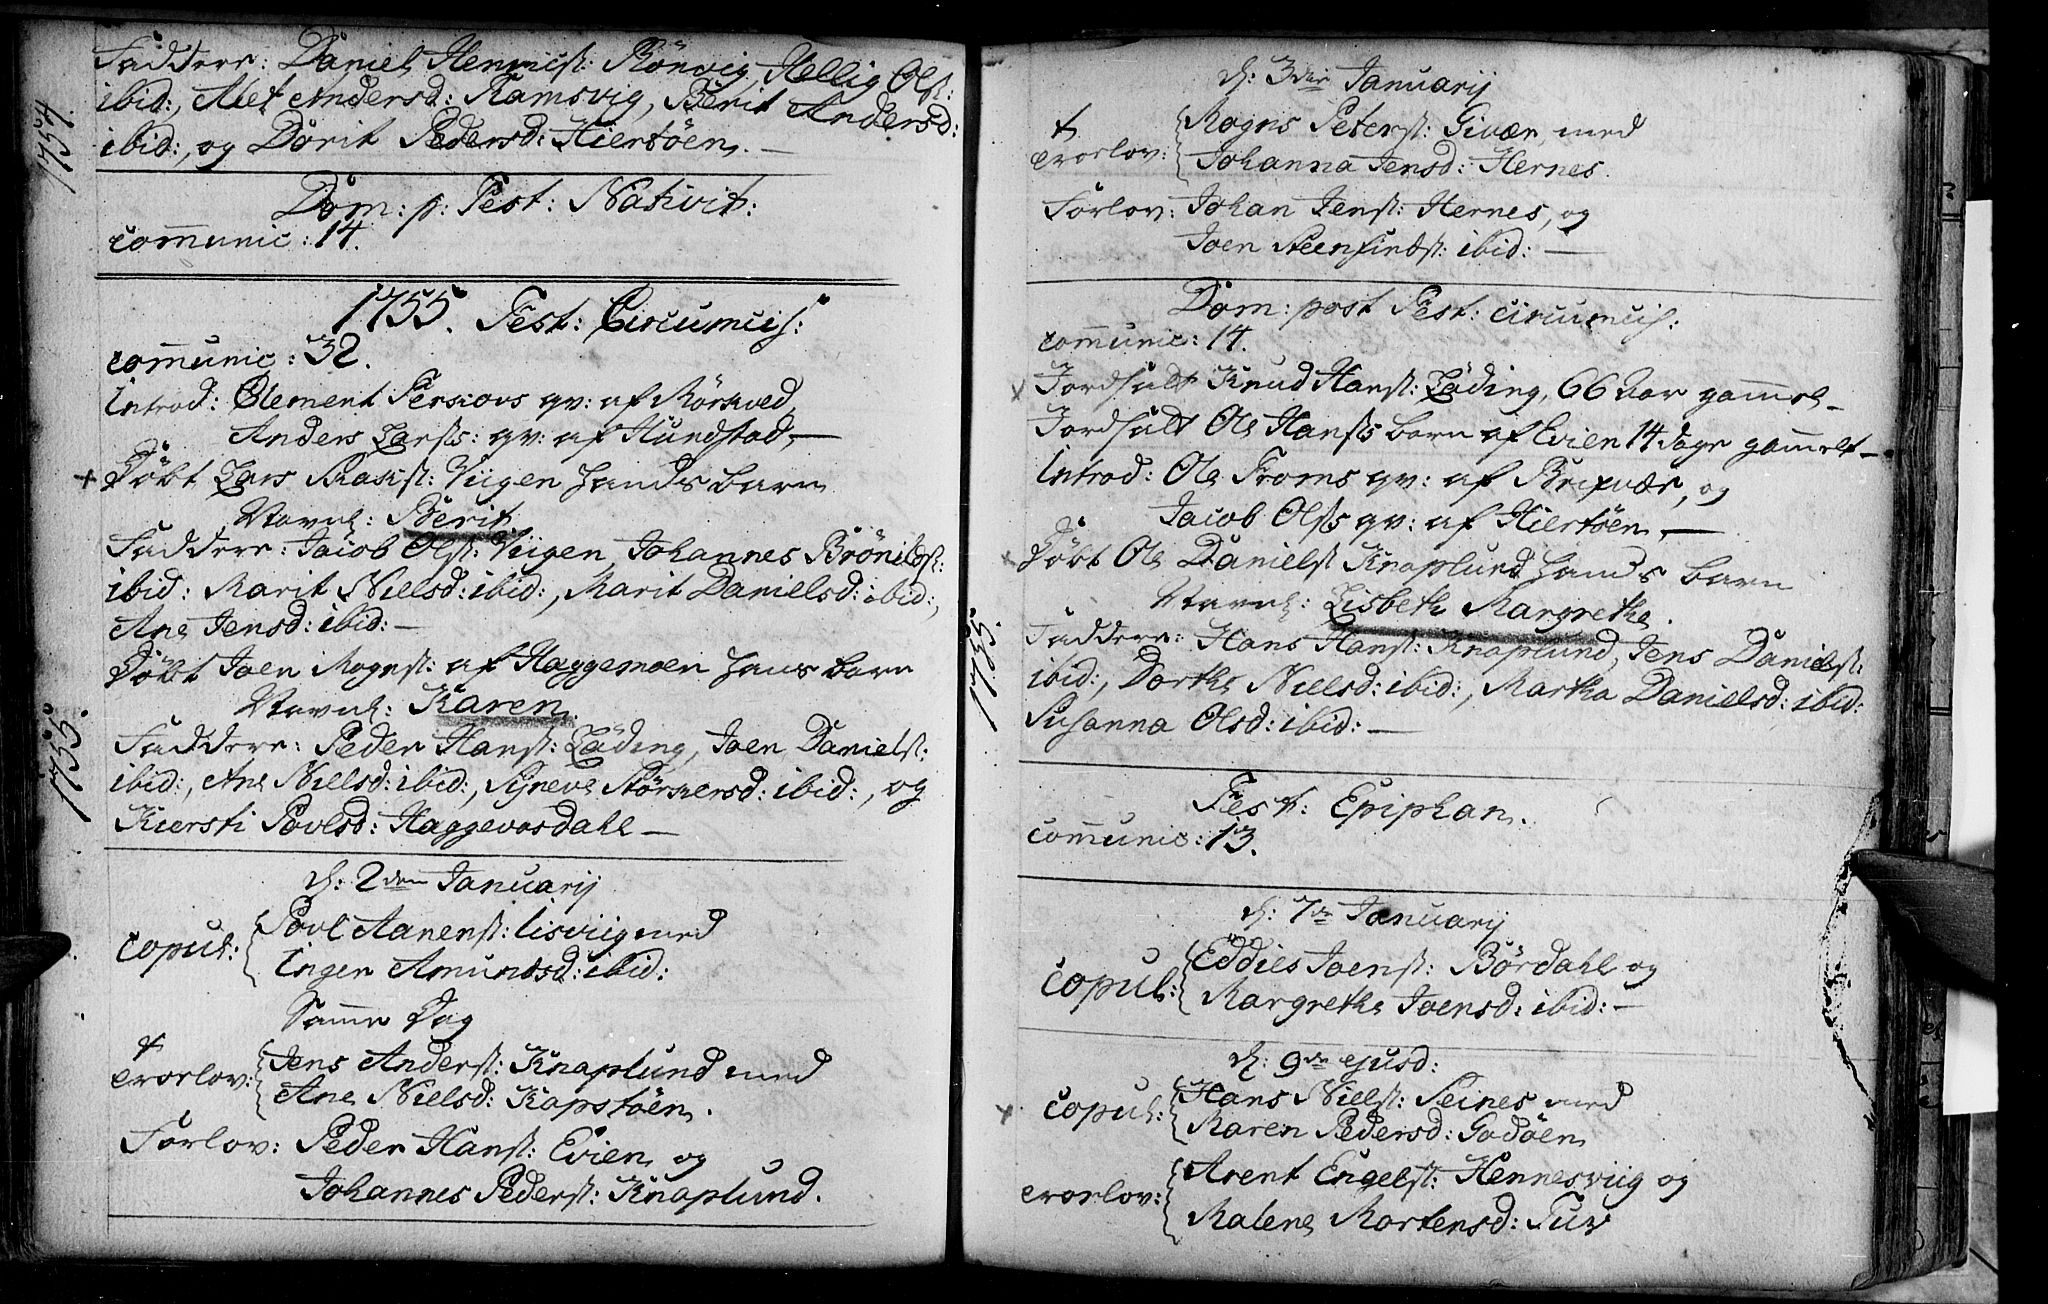 1754.
Faddere: Daniel Hemmics: Rönvig, Hellig Ols:
ibid:, Alet Andersd: Ramsvig, Berit Andersd:
ibid:, og Dorit Pedersd: Hiertöen. —
Dom: p: Fest: Nativit:
communic: 14.
1755. Fest: Circumcis:
communic: 32.
Introd: Clement Persiovs qv: af Rörshved,
Anders Larss: qv: af Hundstad, —
+ Döbt Lars Rasis: Viigen Hands barn
Navnl: Berit.
Faddere: Jacob Ols: Viigen, Johannes Brönilds:
ibid: Marit Nielsd: ibid:, Marit Danielsd: ibid:,
Ane Jensd: ibid: —
Döbt Joen Mogns: af Haggemoen Hans barn
Navnl: Karen.
1755.
Faddere: Peder Hans: Löding, Joen Daniels:
ibid:, Ane Nielsd: ibid:, Signeve Störkersd: ibid:, og
Kiersti Povlsd: Haggevasdahl —
d: 2den Januarij
copul: Povl Aanens: Lisviig med
Inger Amundsd: ibid:
Samme Dag
+
trorlov: Jens Anders: Knaplund med
Ane Nielsd: Kopstöen.
Forlov: Peder Hans: Evien og
Johannes Peders: Knaplund.
d: 3die Januarij
+ Mogns Peters: Givær, med
trorlov: Johanna Jensd: Hernes.
Forlov: Johan Jens: Hernes, og
Joen Steenfinds: ibid: —
Dom: post Fest: circumcis:
communic: 14.
x Jordfult Knud Hans: Löding, 66 Aar gammel —
Jordfult Ole Hanss barn af Evien 14 dage gammelt —
Introd: Ole Troms qv: af Brixvær, og
Jacob Olss qv: af Hiertöen, —
x Döbt Ole Daniels Knaplund Hands barn
Navnl: Lisbeth Margrethe.
1755.
Faddere: Hans Hans: Knaplund, Jens Daniels:
ibid:, Dorthe Nielsd: ibid:, Martha Danielsd: ibid:
Susanna Olsd: ibid: —
Fest: Epiphan.
communic: 13.
d: 7de Januarij
copul: Eddies Joens: Bördahl og
Margrethe Joensd: ibid: —
d: 9de ejusd:
x copul: Hans Niels: Seines med
Maren Pedersd: Godöen
trorlov: Arent Engels: Hennesviig og
Malene Mortensd: Tuv